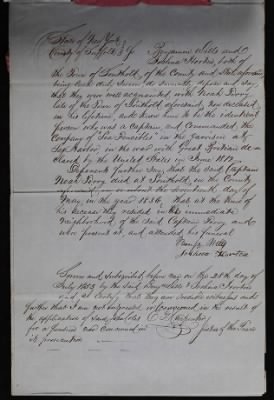 State of New York
County of Suffolk } ss. Benjamin Wells and
Joshua Horton both of
the Town of Southold, of the County and State aforesaid
being each duly sworn do severally depose and say,
that they were well acquainted with Noah Terry
late of the Town of Southold aforesaid, now deceased
in his lifetime, and knew him to be the identical
person who was a Captain, and Commanded the
Company of Sea Fencibles in the garrison at
Sag Harbor, in the war with Great Britain de-
clared by the United States in June 1812.
Deponents further say, that the said Captain
Noah Terry died at Southold, in the County
aforesaid, on or about the seventeenth day of
May, in the year 1836, that at the time of
his decease they resided in the immediate
Neighborhood of the said Captain Terry, and
were present at, and attended his funeral
Benj Wells
Joshua Horton
Sworn and subscribed before me, on the 28th day of
July 1853 by the said Benj Wells & Joshua Horton
and I certify that they are credible witnesses and
further that I am not interested or concerned in the result of
the application of
for a pension nor concerned in Justice of the Peace
its prosecution